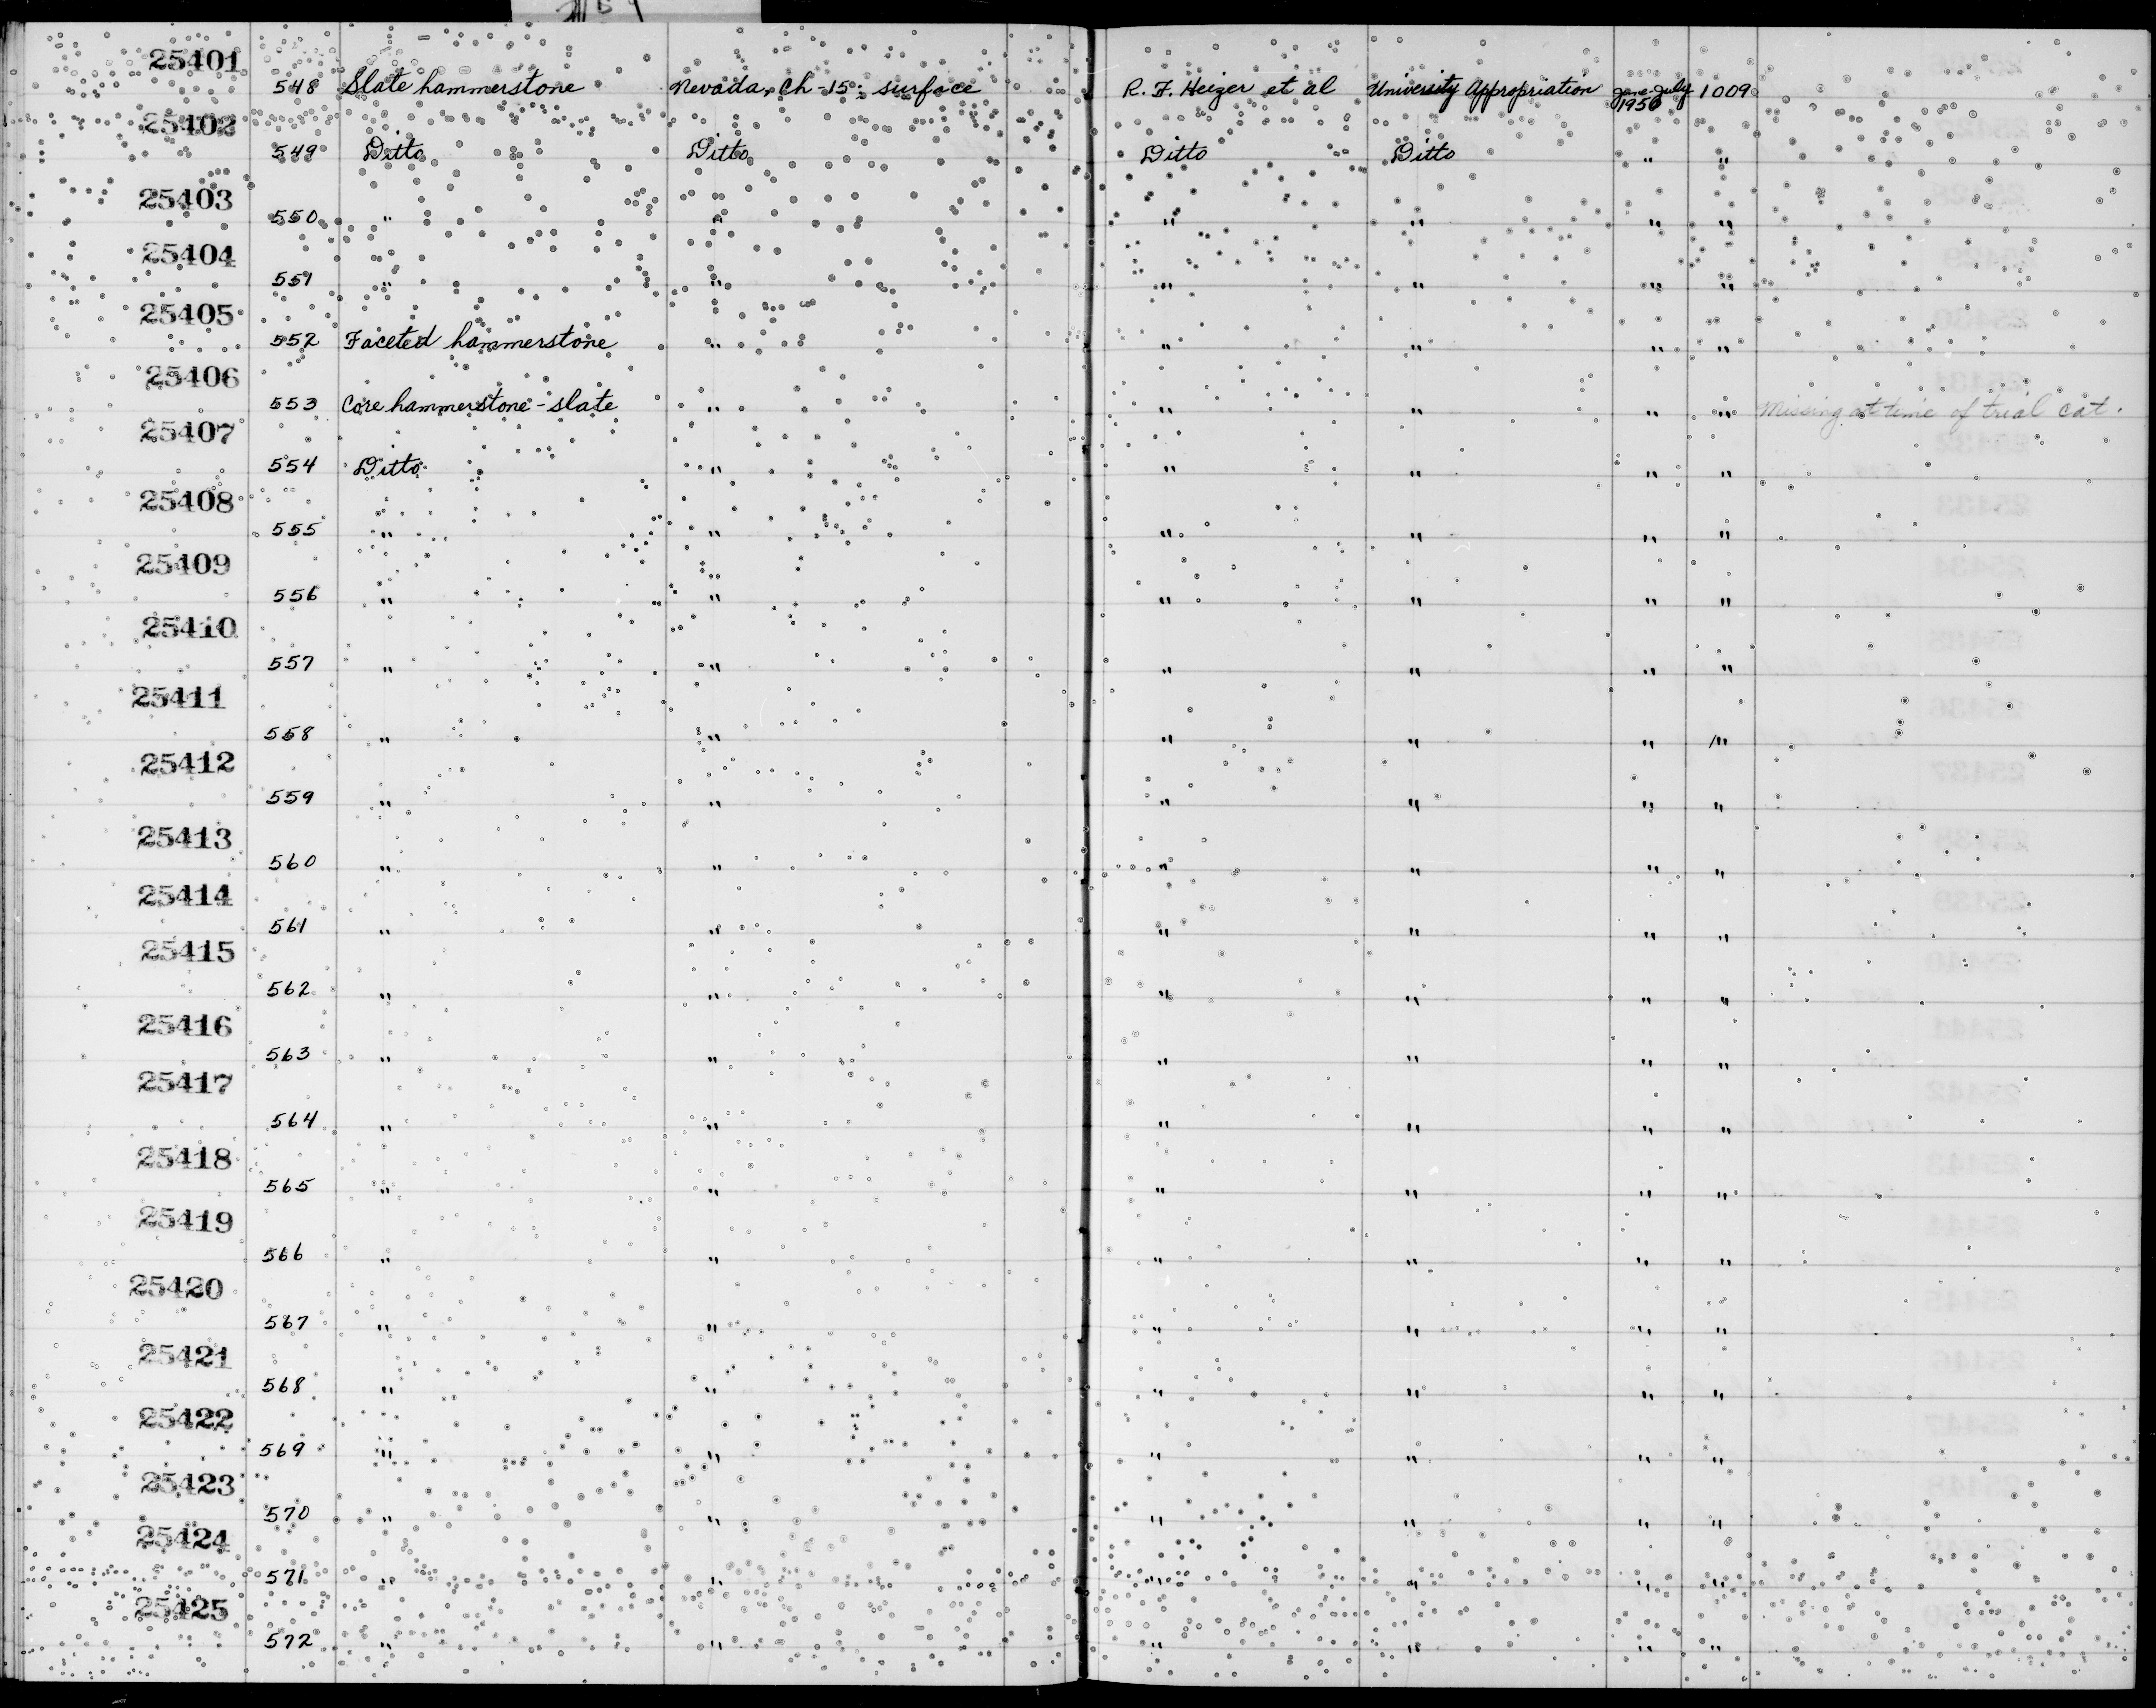 25401
548 Slate hammerstone Nevada, Ch-15: surface R. F. Heizer et al University Appropriation June-July 1950 1009
25402
549 Ditto Ditto Ditto Ditto " "
25403
550 " " " " " "
25404
551 " " " " " "
25405
552 Faceted hammerstone " " " " "
25406
553 Core hammerstone - slate " " " " " Missing at time of trial cat.
25407
554 Ditto " " " " "
25408
555 " " " " " "
25409
556 " " " " " "
25410
557 " " " " " "
25411
558 " " " " " "
25412
559 " " " " " "
25413
560 " " " " " "
25414
561 " " " " " "
25415
562 " " " " " "
25416
563 " " " " " "
25417
564 " " " " " "
25418
565 " " " " " "
25419
566 " " " " " "
25420
567 " " " " " "
25421
568 " " " " " "
25422
569 " " " " " "
25423
570 " " " " " "
25424
571 " " " " " "
25425
572 " " " " " "